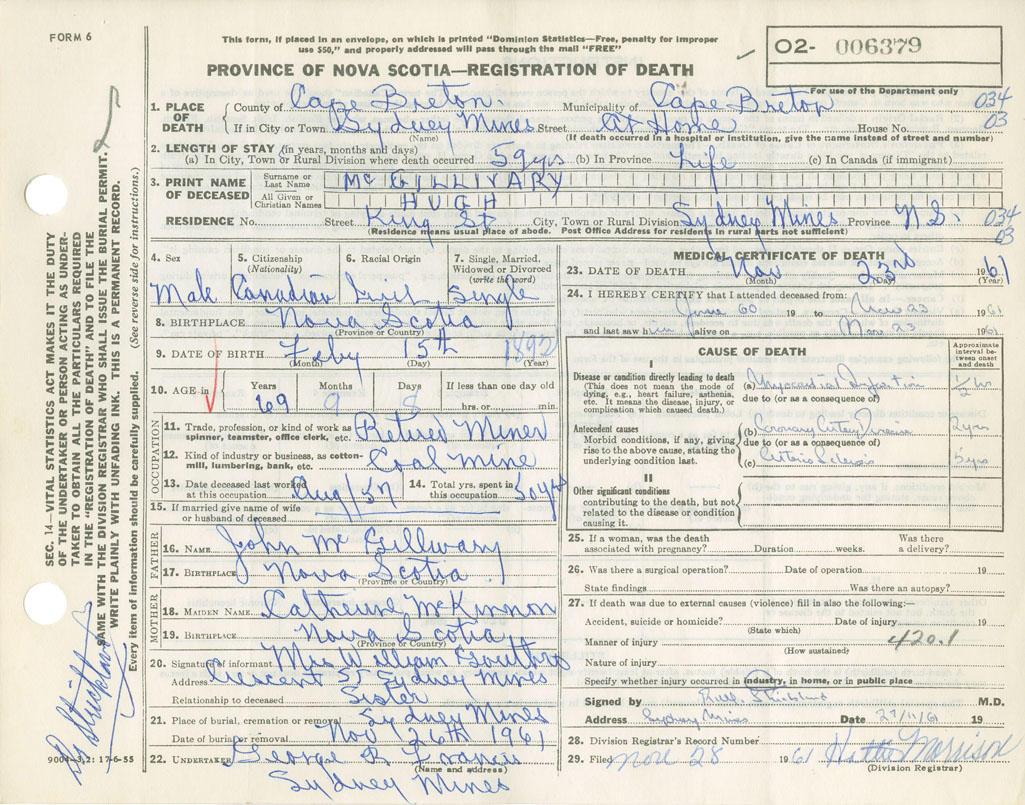 FORM 6
This form, if placed in an envelope, on which is printed "Dominion Statistics—Free, penalty for improper
use $50," and properly addressed will pass through the mail "FREE"
PROVINCE OF NOVA SCOTIA—REGISTRATION OF DEATH
O2- 006379
For use of the Department only
1. PLACE OF DEATH County of Cape Breton Municipality of Cape Breton 034
If in City or Town Sydney Mines Street At Home House No. 03
(Name) (If death occurred in a hospital or institution, give the name instead of street and number)
2. LENGTH OF STAY (in years, months and days)
(a) In City, Town or Rural Division where death occurred 59 yrs (b) In Province Life (c) In Canada (if immigrant)
3. PRINT NAME OF DECEASED
Surname or Last Name McGILLIVARY
All Given or Christian Names HUGH
RESIDENCE No. Street King St City, Town or Rural Division Sydney Mines Province N.S. 034
03
(Residence means usual place of abode. Post Office Address for residents in rural parts not sufficient)
4. Sex 5. Citizenship (Nationality) 6. Racial Origin 7. Single, Married, Widowed or Divorced (write the word)
Male Canadian Irish Single
8. BIRTHPLACE Nova Scotia
(Province or Country)
9. DATE OF BIRTH Feby 15th 1892
(Month) (Day) (Year)
10. AGE in Years Months Days If less than one day old
69 9 8 hrs. or min.
OCCUPATION
11. Trade, profession, or kind of work as spinner, teamster, office clerk, etc. Retired Miner
12. Kind of industry or business, as cotton-mill, lumbering, bank, etc. Coal Mine
13. Date deceased last worked at this occupation Aug/57 14. Total yrs. spent in this occupation 50 yrs
15. If married give name of wife or husband of deceased
FATHER
16. NAME John McGillivary
17. BIRTHPLACE Nova Scotia
(Province or Country)
MOTHER
18. MAIDEN NAME Catherine McKinnon
19. BIRTHPLACE Nova Scotia
(Province or Country)
20. Signature of informant Mrs William Gouthro
Address Crescent St Sydney Mines
Relationship to deceased Sister
21. Place of burial, cremation or removal Sydney Mines
Date of burial or removal Nov 26th 1961
22. UNDERTAKER George R Francis
(Name and address)
Sydney Mines
9004-3,2: 17-6-55
MEDICAL CERTIFICATE OF DEATH
23. DATE OF DEATH Nov 23rd 1961
(Month) (Day) (Year)
24. I HEREBY CERTIFY that I attended deceased from:
June 60 19 to Nov 23 1961
and last saw him alive on Nov 23 1961
CAUSE OF DEATH
Approximate interval between onset and death
I
Disease or condition directly leading to death
(This does not mean the mode of dying, e.g., heart failure, asthenia, etc. It means the disease, injury, or complication which caused death.)
(a) Myocardial Infarction 1/2 hr
due to (or as a consequence of)
Antecedent causes
Morbid conditions, if any, giving rise to the above cause, stating the underlying condition last.
(b) Coronary Artery Disease 2 yrs
due to (or as a consequence of)
(c) Arterio Sclerosis 5 yrs
II
Other significant conditions
contributing to the death, but not related to the disease or condition causing it.
25. If a woman, was the death associated with pregnancy? Duration weeks. Was there a delivery?
26. Was there a surgical operation? Date of operation 19
State findings Was there an autopsy?
27. If death was due to external causes (violence) fill in also the following:—
Accident, suicide or homicide? Date of injury 19
(State which)
Manner of injury 420.1
(How sustained)
Nature of injury
Specify whether injury occurred in industry, in home, or in public place
Signed by M.D.
Address Sydney Mines Date 27/11/61 19
28. Division Registrar's Record Number
29. Filed Nov 28 1961 Morrison
(Division Registrar)
SEC. 14—VITAL STATISTICS ACT MAKES IT THE DUTY
OF THE UNDERTAKER OR PERSON ACTING AS UNDER-
TAKER TO OBTAIN ALL THE PARTICULARS REQUIRED
IN THE "REGISTRATION OF DEATH" AND TO FILE THE
SAME WITH THE DIVISION REGISTRAR WHO SHALL ISSUE THE BURIAL PERMIT.
WRITE PLAINLY WITH UNFADING INK. THIS IS A PERMANENT RECORD.
Every item of information should be carefully supplied. (See reverse side for instructions.)